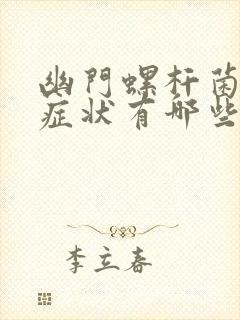 幽門螺杆菌
症状有哪些
李立春